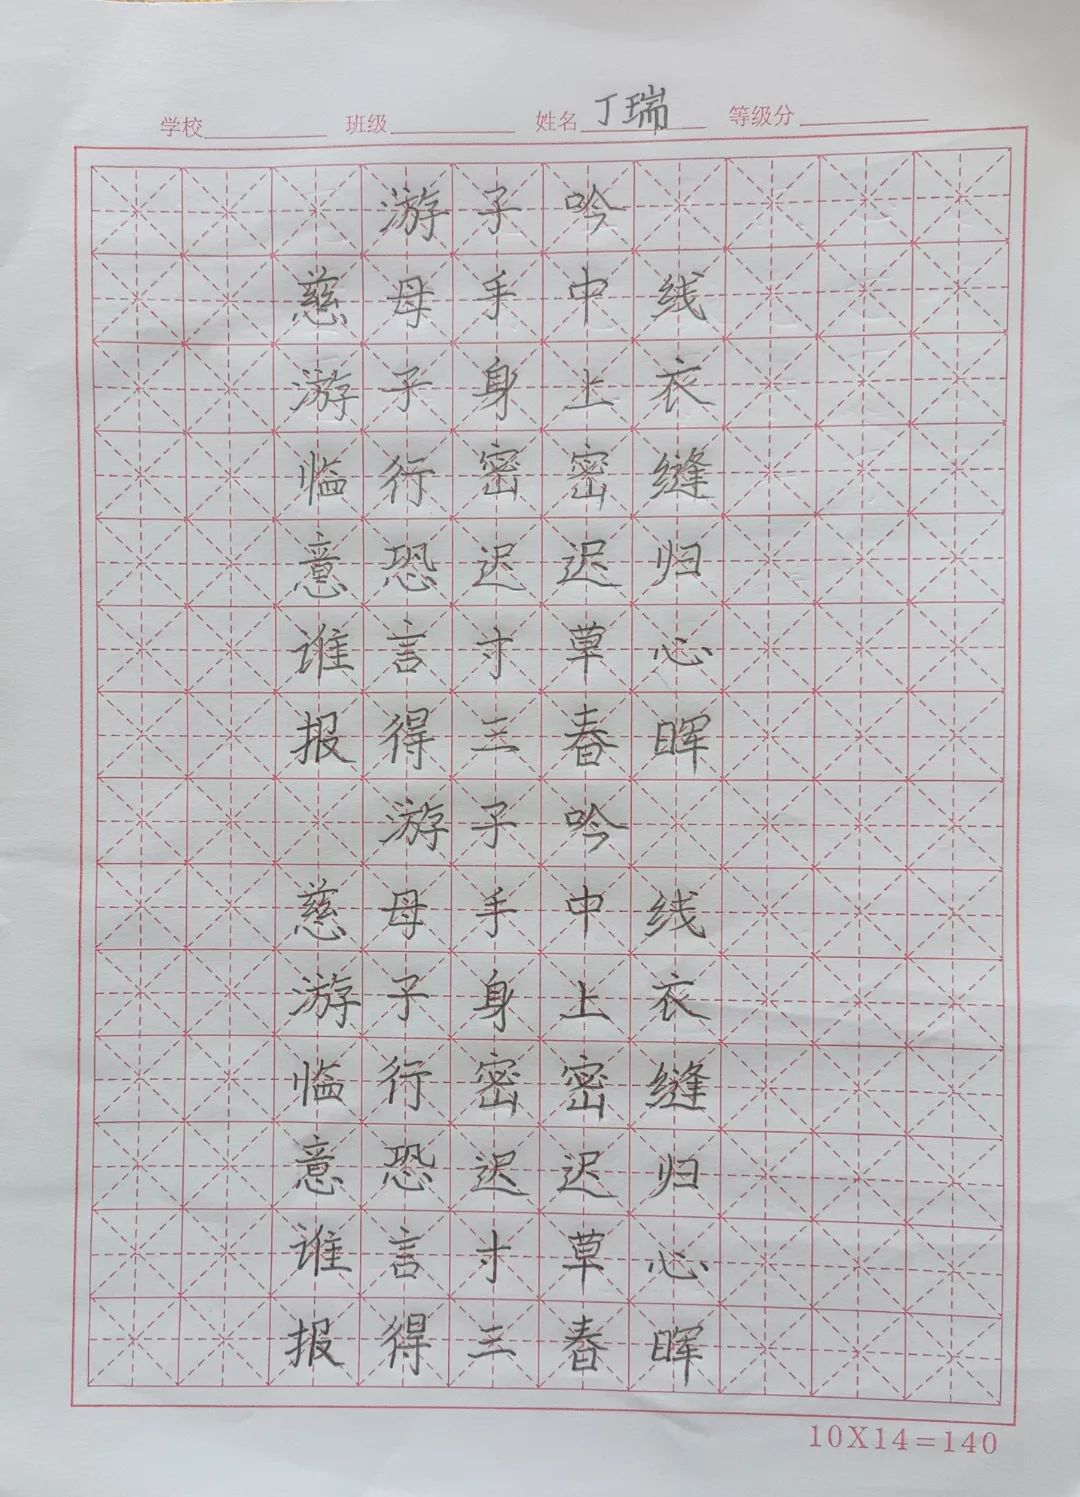 学校 班级 姓名 丁瑞 等级分
游子吟
慈母手中线
游子身上衣
临行密密缝
意恐迟迟归
谁言寸草心
报得三春晖
游子吟
慈母手中线
游子身上衣
临行密密缝
意恐迟迟归
谁言寸草心
报得三春晖
10X14=140